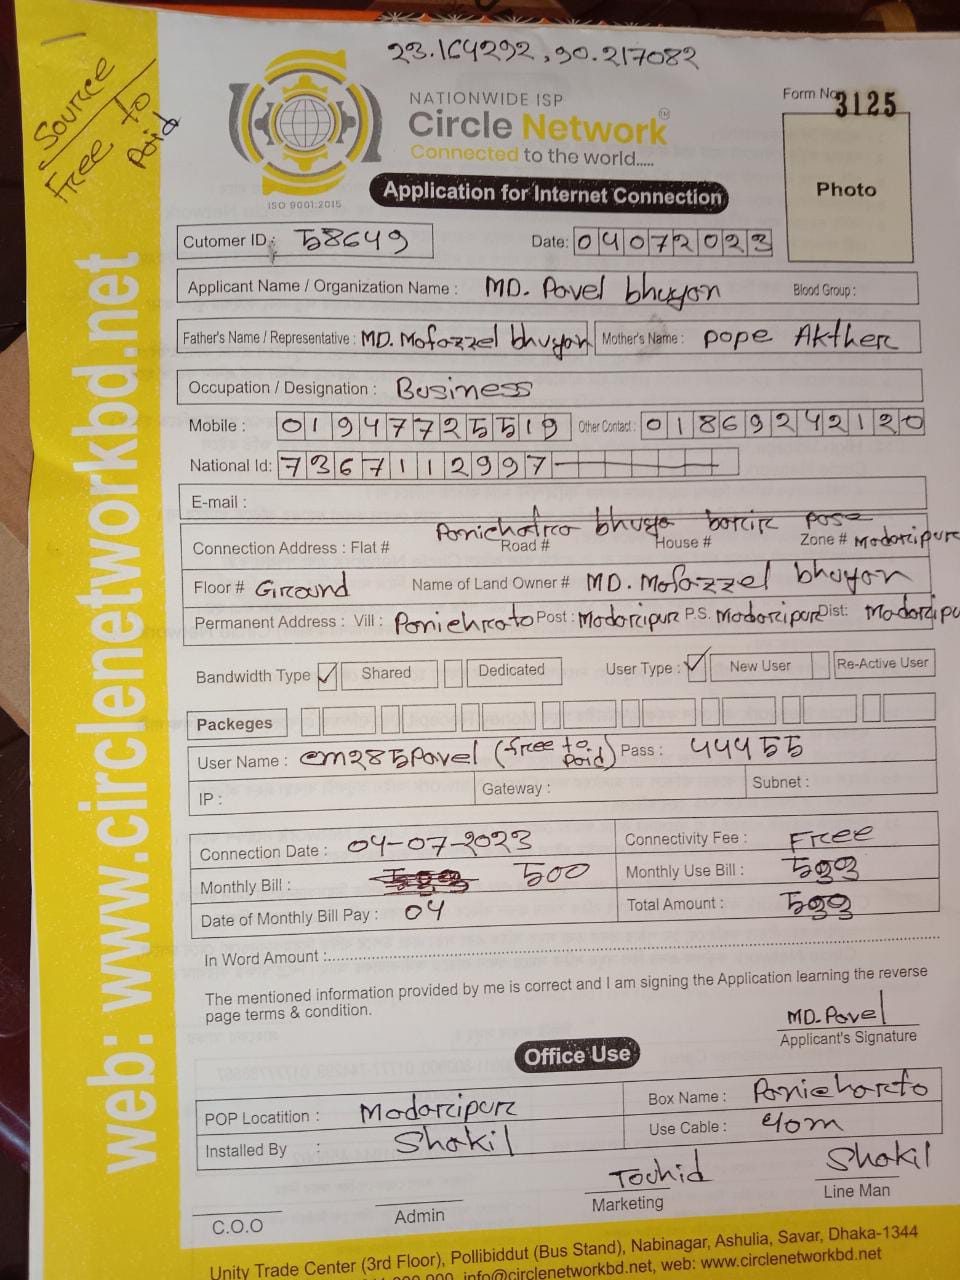 23.164292, 90.217082
Source
Free to
paid
NATIONWIDE ISP
Circle Network TM
Connected to the world.....
ISO 9001:2015
Form No 3125
Photo
Application for Internet Connection
Cutomer ID: 58649 Date: 04072023
Applicant Name / Organization Name : MD. Pavel bhuyan Blood Group :
Father's Name / Representative : MD. Mofazzel bhuyan Mother's Name : pope Akther
Occupation / Designation : Business
Mobile : 01947725519 Other Contact : 01869242120
National Id: 7367112997
E-mail :
Panichatra bhuya barir pase
Connection Address : Flat # Road # House # Zone # Madaripure
Floor # Ground Name of Land Owner # MD. Mofazzel bhuyan
Permanent Address : Vill : Panichrato Post : Madaripur P.S. Madaripur Dist: Madaripu
Bandwidth Type ✓ Shared Dedicated User Type : ✓ New User Re-Active User
Packeges
User Name : cm285Pavel (free to paid) Pass : 44455
IP : Gateway : Subnet :
Connection Date : 04-07-2023 Connectivity Fee : Free
Monthly Bill : 500 Monthly Use Bill :
Date of Monthly Bill Pay : 04 Total Amount :
In Word Amount :
The mentioned information provided by me is correct and I am signing the Application learning the reverse
page terms & condition.
MD. Pavel
Applicant's Signature
Office Use
POP Locatition : Madaripur Box Name : Panicharto
Installed By : Shakil Use Cable : 40m
Touhid Shakil
C.O.O Admin Marketing Line Man
Unity Trade Center (3rd Floor), Pollibiddut (Bus Stand), Nabinagar, Ashulia, Savar, Dhaka-1344
info@circlenetworkbd.net, web: www.circlenetworkbd.net
web: www.circlenetworkbd.net